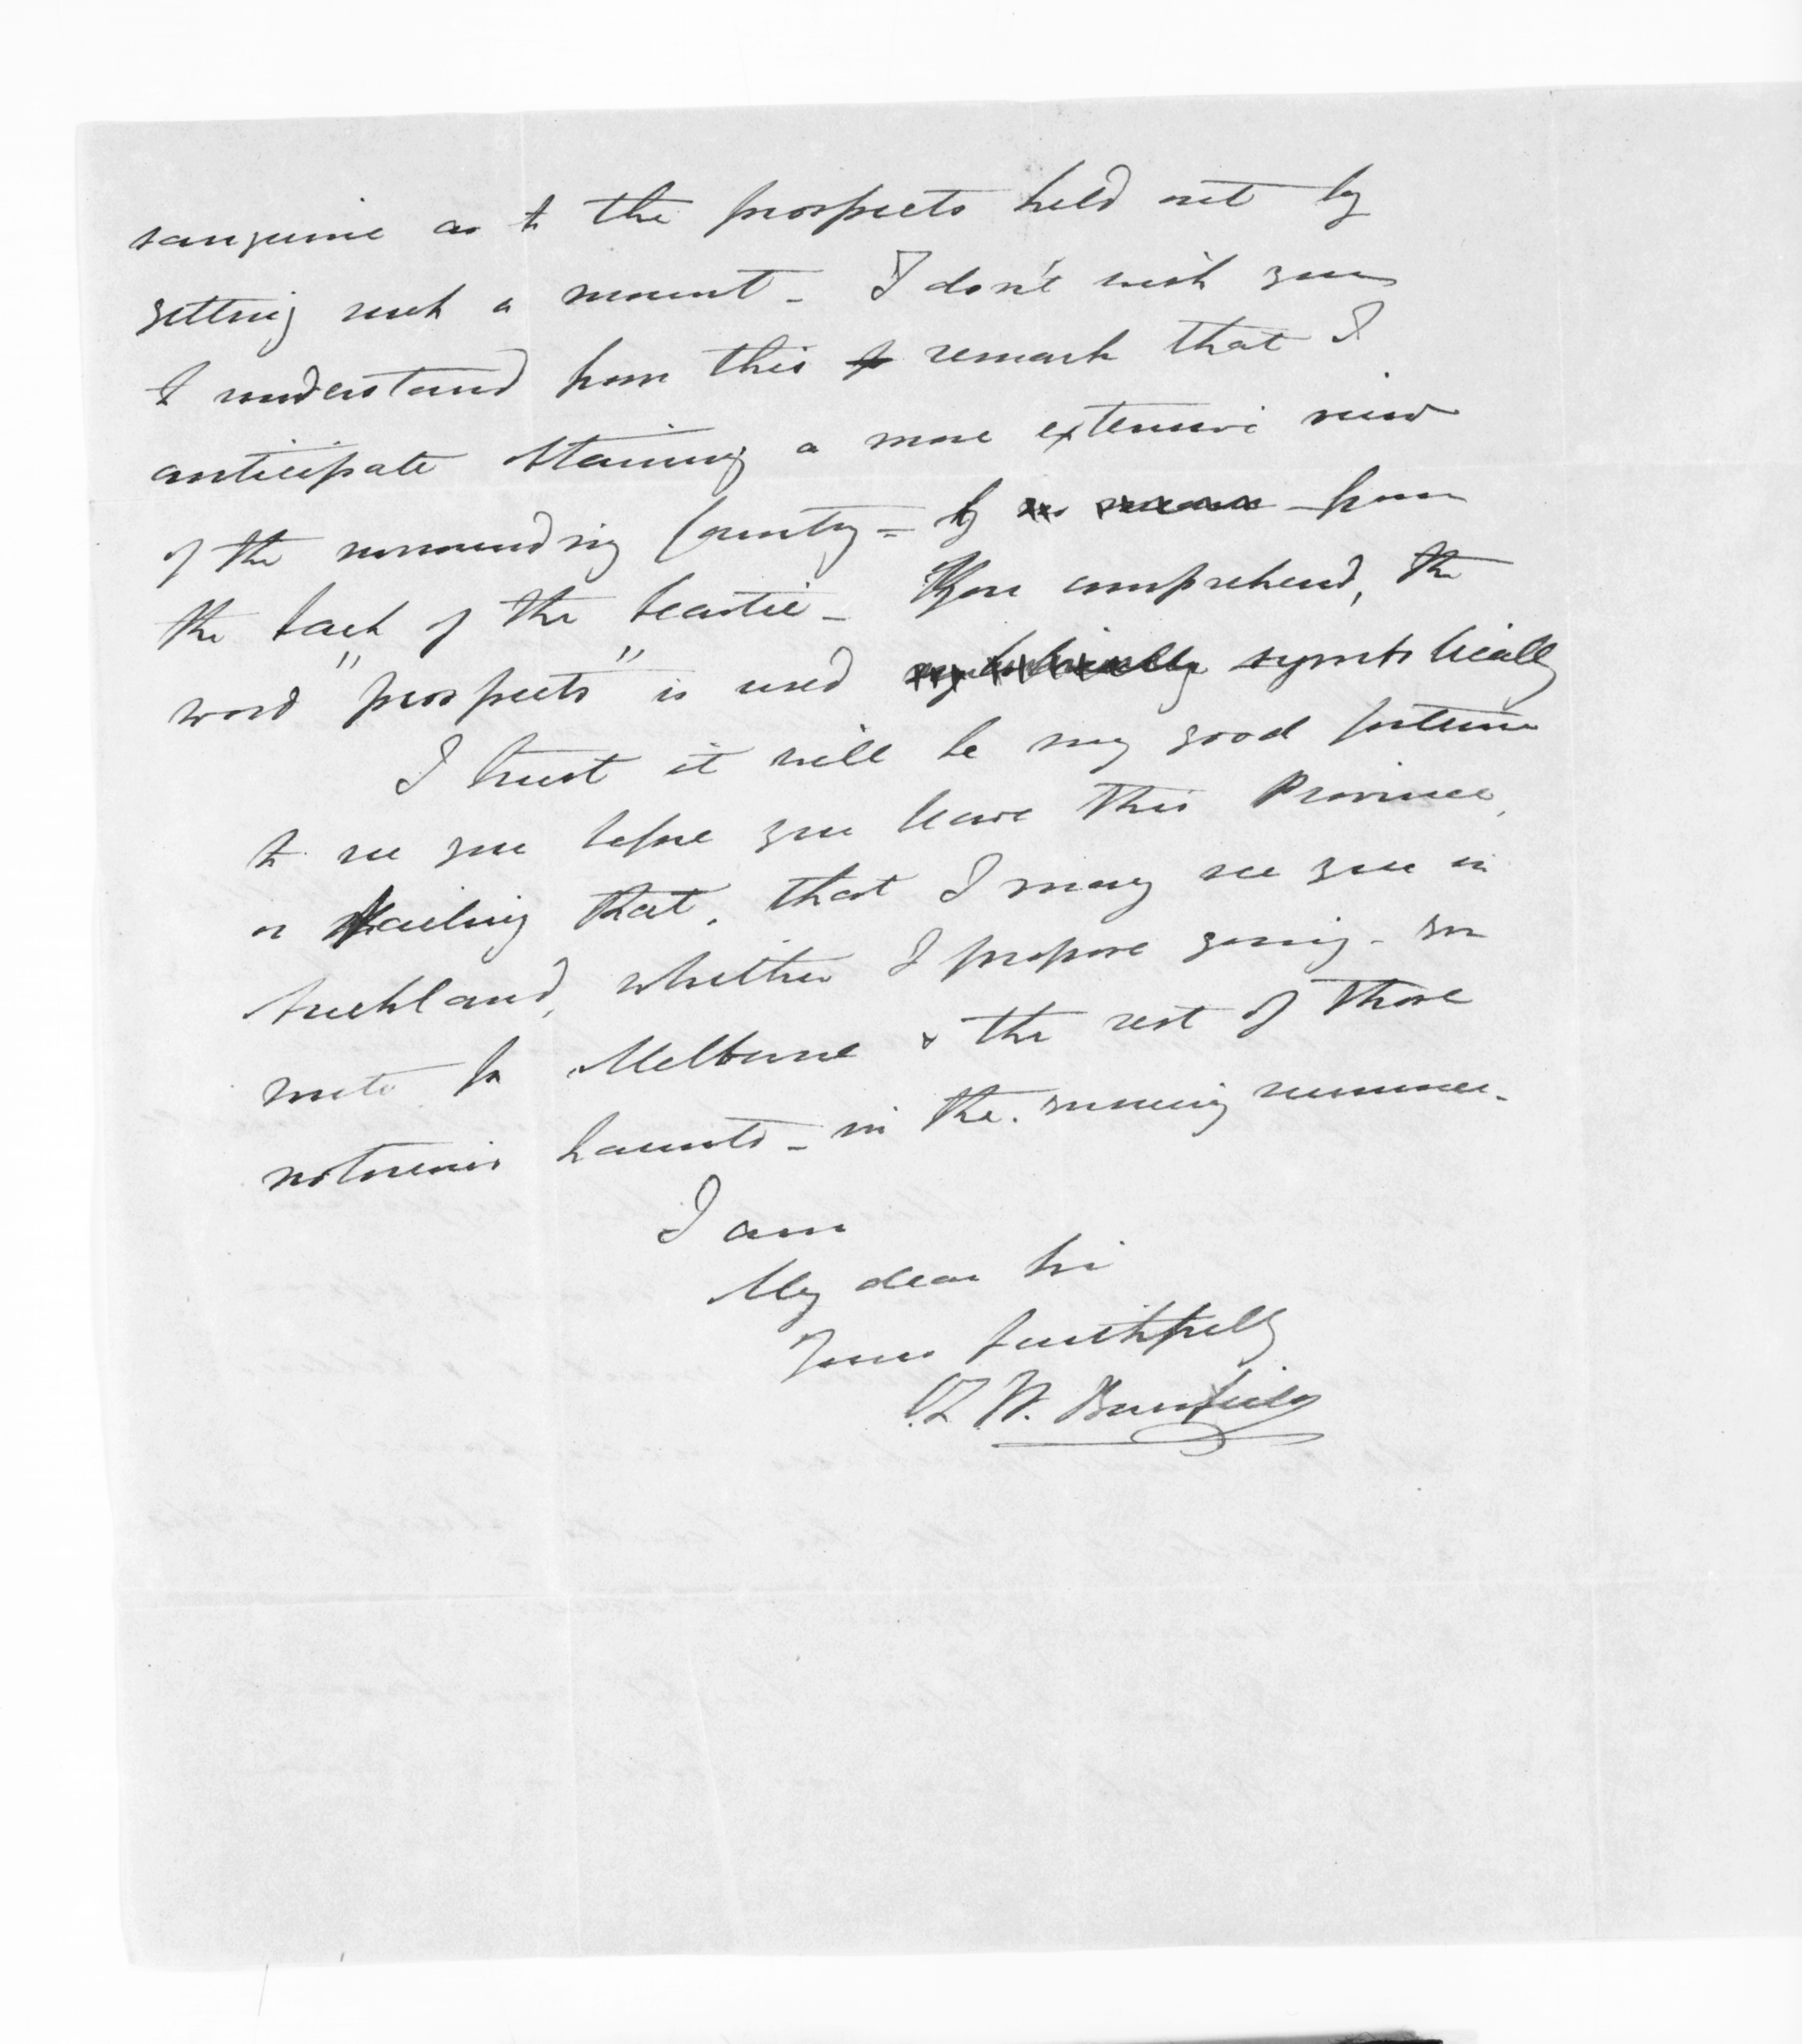 sanguine as to the prospects held out by
getting such a mount - I don't wish you
to understand from this remark that I
anticipate obtaining a more extensive view
of the surrounding Country = by from
the back of the beastie - You comprehend, the
word "prospects" is used symbolically
I trust it will be my good fortune
to see you before you leave this Province,
or failing that, that I may see you in
Auckland, whither I propose going - en
route for Melbourne & the rest of those
notorious haunts - in the summer.
I am
My dear Sir
Yours faithfully
W.